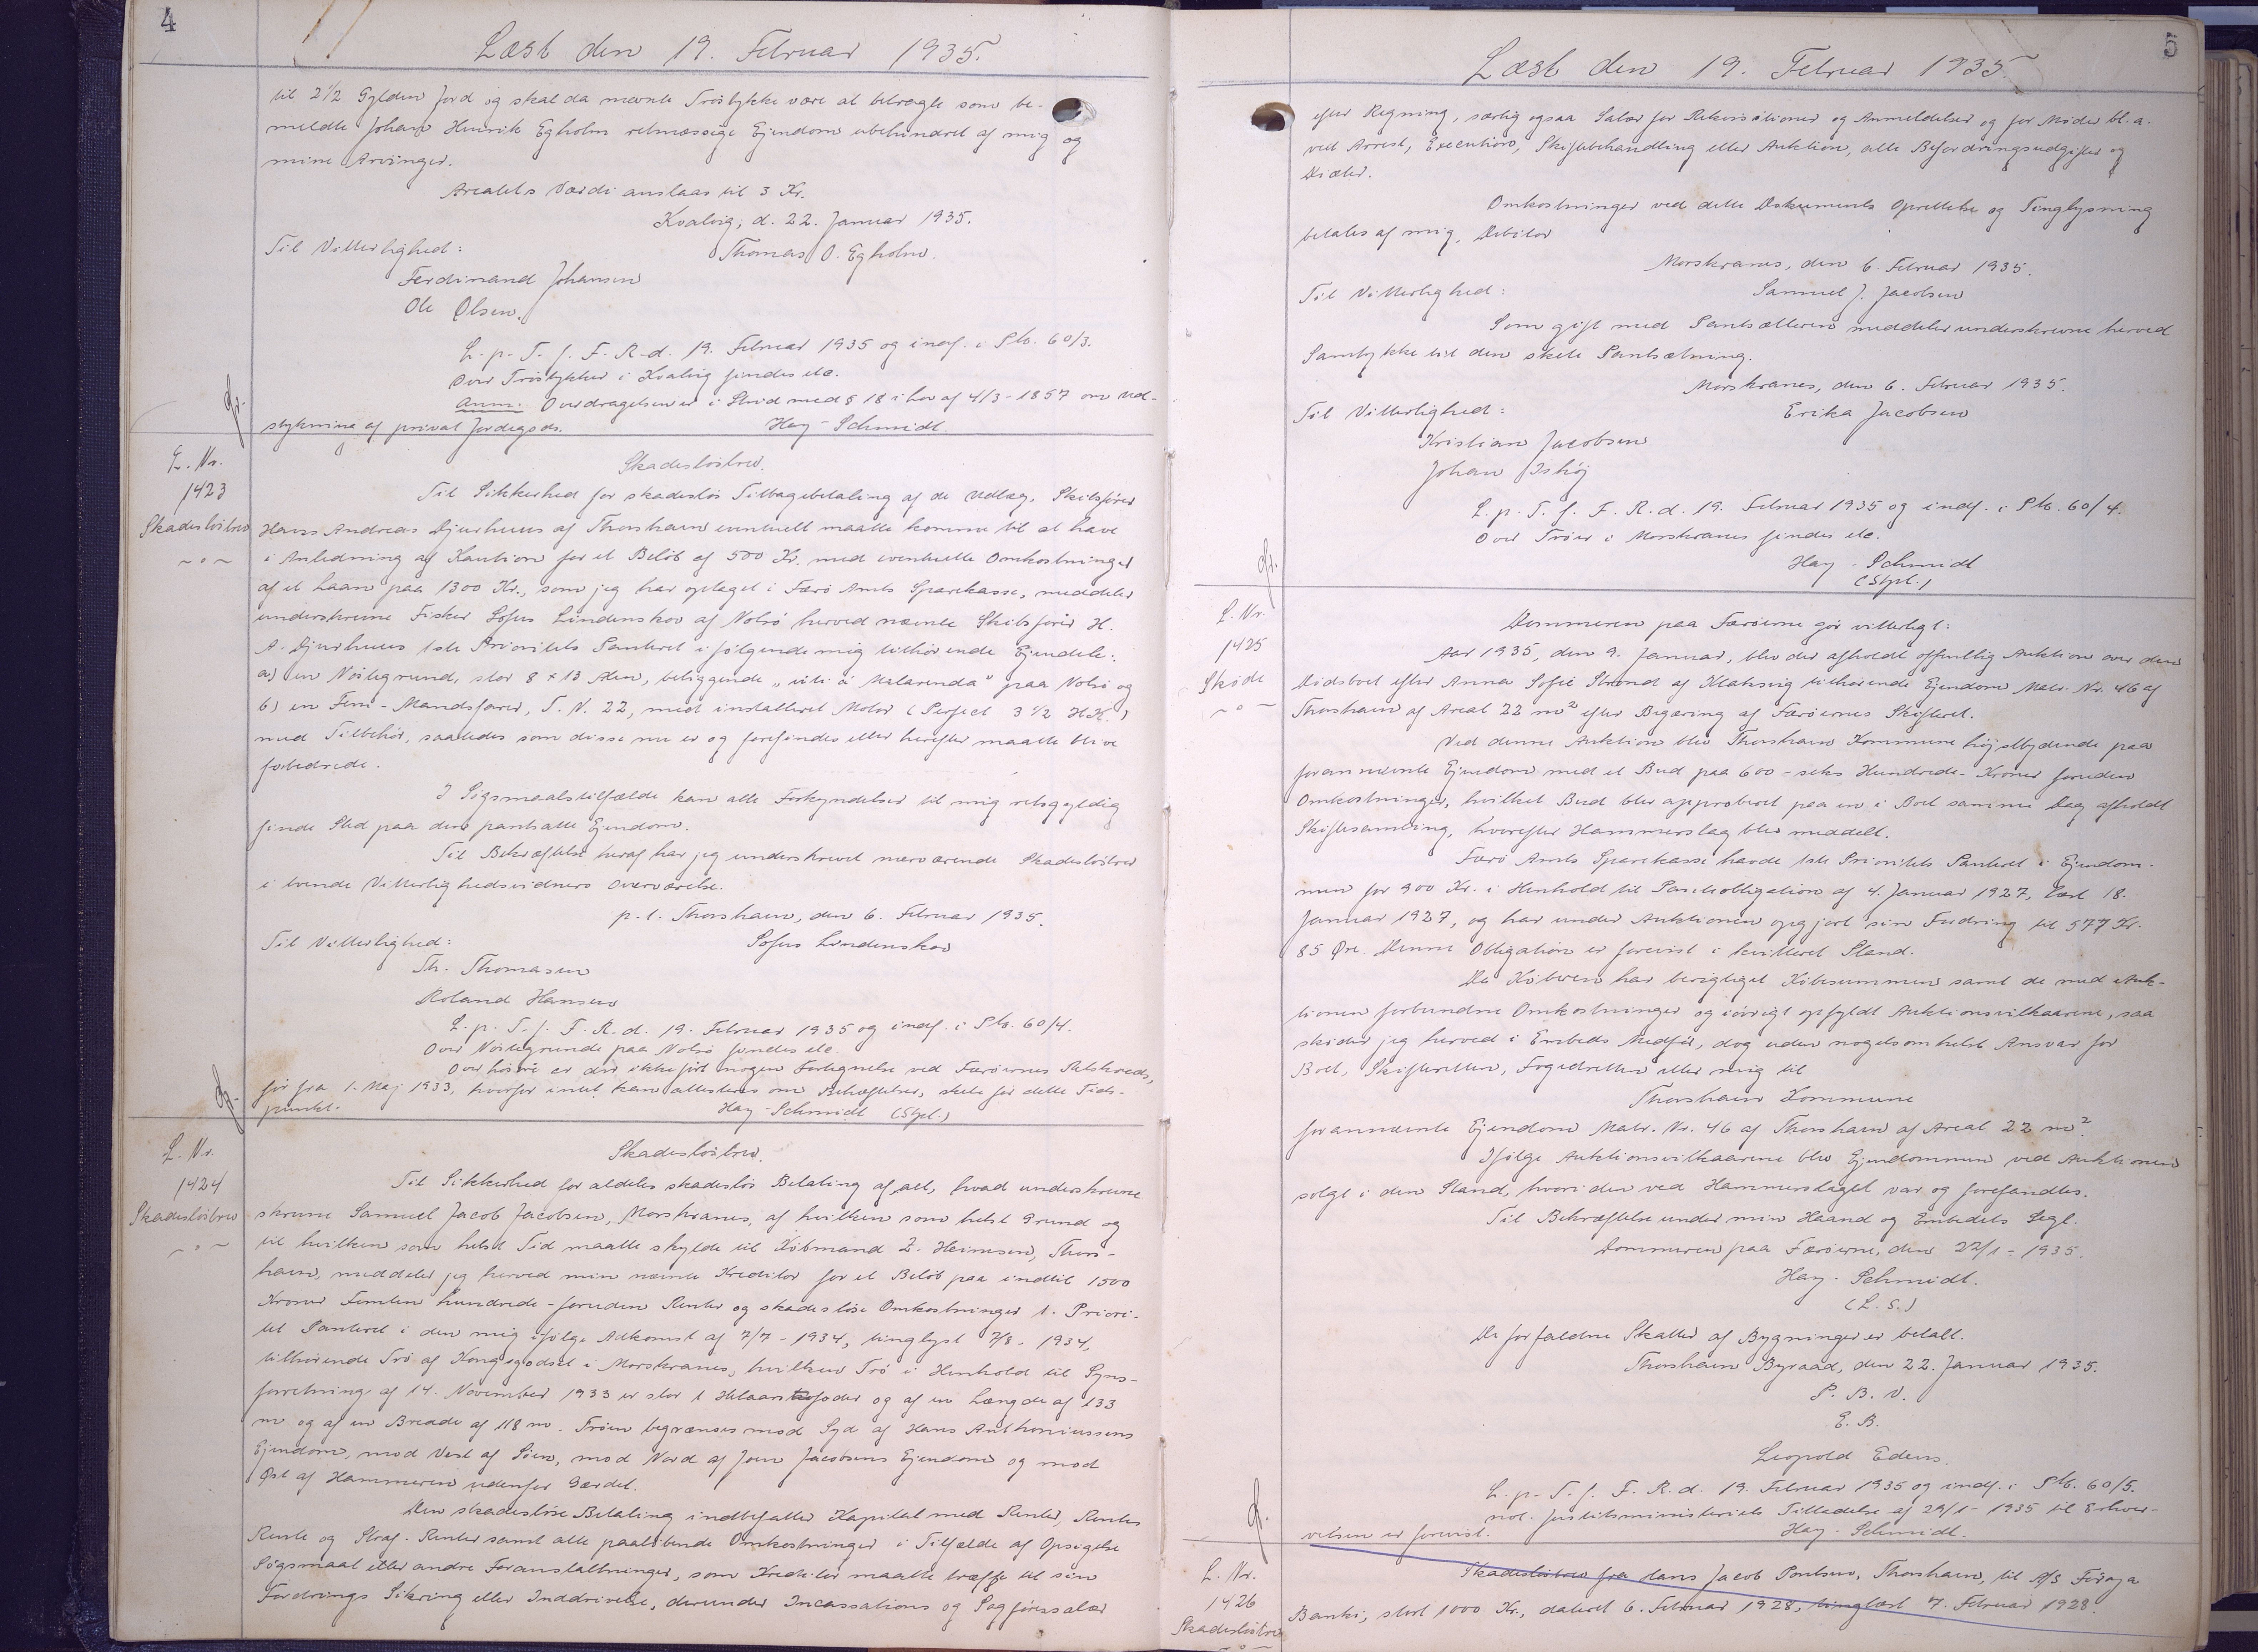 4
Læst den 19. Februar 1935.
til 2½ Gylden Jord og skal da nævnte Tröstykke være at betragte som be-
meldte Johan Henrik Egholm retmæssige Ejendom ubehindret af mig og
mine Arvinger.
Arealets Værdi anslaas til 3 Kr.
Kvalvig, d. 22. Januar 1935.
Til Vitterlighed:
Thomas O. Egholm.
Ferdinand Johansen
Ole Olsen.
L. p. T. f. F. R. d. 19. Februar 1935 og indf. i Ptb. 60/3.
Over Tröstykker i Kvalvig findes ete.
Anm: Overdragelsen er i Strid med § 18 i Lov af 4/3-1857 om Ud-
stykning af privat Jordegods.
Hay-Schmidt.
L. Nr.
1423
Skadeslösbrev
~ " ~
Skadeslösbrev.
Til Sikkerhed for skadeslös Tilbagebetaling af de Udlæg, Skibsförer
Hans Andreas Djurhuus af Thorshavn eventuelt maatte komme til at have
i Anledning af Kaution for et Belöb af 500 Kr. med eventuelle Omkostninger
af et Laan paa 1300 Kr., som jeg har optaget i Færö Amts Sparekasse, meddeler
underskrevne Fisker Sofus Lindenskov af Nolsö herved nævnte Skibsförer H.
A. Djurhuus 1ste Prioritets Panteret i fölgende mig tilhörende Ejendele:
a) en Nöstegrund, stor 8 x 13 Alen, beliggende "úti á Malarenda" paa Nolsö og
b) en Fem-Mandsfarer, T. N. 22, med installeret Motor (Perfect 3½ HK.)
med Tilbehör, saaledes som disse nu er og forefindes eller herefter maatte blive
forbedrede.
I Sögsmaalstilfælde kan alle Forkyndelser til mig retsgyldig
finde Sted paa den pantsatte Ejendom.
Til Bekræftelse heraf har jeg underskrevet nærværende Skadeslösbrev
i tvende Vitterlighedsvidners Overværelse.
p. t. Thorshavn, den 6. Februar 1935.
Til Vitterlighed:
Sofus Lindenskov
Th. Thomasen
Roland Hansen
L. p. T. f. F. R. d. 19. Februar 1935 og indf. i Ptb. 60/4.
Over Nöstegrunde paa Nolsö findes ete
Over Lösöre er der ikke fört nogen Fortegnelse ved Færöernes Retskreds,
för fra 1. Maj 1933, hvorfor intet kan attesteres om Behæftelser, skete för dette Tids-
punkt.
Hay-Schmidt (Stpl.)
L. Nr.
1424
Skadeslösbrev
~ " ~
Skadeslösbrev.
Til Sikkerhed for aldeles skadeslös Betaling af alt, hvad underskrevne
skrevne Samuel Jacob Jacobsen, Morskranes, af hvilken som helst Grund og
til hvilken som helst Tid maatte skylde til Köbmand Z. Heinesen, Thors-
havn, meddeler jeg herved min nævnte Kreditor for et Belöb paa indtil 1500
Kroner Femten hundrede - foruden Renter og skadeslöse Omkostninger 1. Priori-
tet Panteret i den mig ifölge Adkomst af 7/7-1934, tinglyst 7/8-1934,
tilhörende Trö af Kongsgodset i Morskranes, hvilken Trö i Henhold til Syns-
forretning af 14. November 1933 er stor 1 Helaars foder og af en Længde af 133
m og af en Bredde af 118 m. Tröen begrænses mod Syd af Hans Anthoniussens
Ejendom, mod Vest af Söen, mod Nord af Joen Jacobsens Ejendom og mod
Öst af Hammeren udenfor Gærdet.
Den skadeslöse Betaling indbefatter Kapital med Renter, Renters
Rente og Straf-Renter samt alle paalöbende Omkostninger i Tilfælde af Opsigelse
Sögsmaal eller andre Foranstaltninger, som Kreditor maatte træffe til sin
Fordrings Sikring eller Inddrivelse, derunder Incassations og Sagförersalær
5
Læst den 19. Februar 1935.
efter Regning, særlig ogsaa Salær for Rekvisitioner og Anmeldelser og for Möder bl. a.
ved Arrest, Execution, Skiftebehandling eller Auktion, alle Befordringsudgifter og
Diæter.
Omkostninger ved dette Dokuments Oprettelse og Tinglysning
betales af mig, Debitor
Morskranes, den 6. Februar 1935.
Til Vitterlighed:
Samuel J. Jacobsen
Som gift med Pantsætteren meddeler underskrevne herved
Samtykke til den skete Pantsætning.
Morskranes, den 6. Februar 1935.
Til Vitterlighed:
Erika Jacobsen
Kristian Jacobsen
Johan Ishöj
L. p. T. f. F. R. d. 19. Februar 1935 og indf. i Ptb. 60/4.
Over Tröer i Morskranes findes ete.
Hay-Schmidt
(Stpl.)
L. Nr.
1425
Sköde
~ " ~
Dommeren paa Færöerne gör vitterligt:
Aar 1935, den 9. Januar, blev der afholdt offentlig Auktion over den
Dödsboet efter Anna Sofie Strond af Klaksvig tilhörende Ejendom Matr. Nr. 46 af
Thorshavn af Areal 22 m² efter Begæring af Færöernes Skifteret.
Ved denne Auktion blev Thorshavn Kommune höjstbydende paa
forannævnte Ejendom med et Bud paa 600 - seks Hundrede - Kroner foruden
Omkostninger, hvilket Bud blev approberet paa en i Boet samme Dag afholdt
Skiftesamling, hvorefter Hammerslag blev meddelt.
Færö Amts Sparekasse havde 1ste Prioritets Panteret i Ejendom-
men for 900 Kr. i Henhold til Panteobligation af 4. Januar 1927, læst 18.
Januar 1927, og har under Auktionen opgjort sin Fordring til 577 Kr.
85 Øre. Denne Obligation er forevist i kvitteret Stand.
Da Köberen har berigtiget Köbesummen samt de med Auk-
tionen forbundne Omkostninger og iövrigt opfyldt Auktionsvilkaarene, saa
sköder jeg herved i Embeds Medför, dog uden nogetsomhelst Ansvar for
Boet, Skifteretten, Fogedretten eller mig til
Thorshavn Kommune
forannævnte Ejendom Matr. Nr. 46 af Thorshavn af Areal 22 m².
Ifölge Auktionsvilkaarene blev Ejendommen ved Auktionen
solgt i den Stand, hvori den ved Hammerslaget var og forefandtes.
Til Bekræftelse under min Haand og Embedets Segl.
Dommeren paa Færöerne, den 22/1-1935.
Hay-Schmidt.
(L. S.)
De forfaldne Skatter af Bygninger er betalt.
Thorshavn Byraad, den 22. Januar 1935.
P. B. V.
E. B.
Leopold Edens.
L. p. T. f. F. R. d. 19. Februar 1935 og indf. i Ptb. 60/5.
not. Justitsministeriets Tilladelse af 29/1-1935 til Erhver-
velsen er forevist.
Hay-Schmidt.
L. Nr.
1426
Skadeslösbrev
~ " ~
Skadeslösbrev fra Hans Jacob Poulsen, Thorshavn, til A/S Föroya
Banki, stort 1000 Kr., dateret 6. Februar 1928, tinglæst 7. Februar 1928.